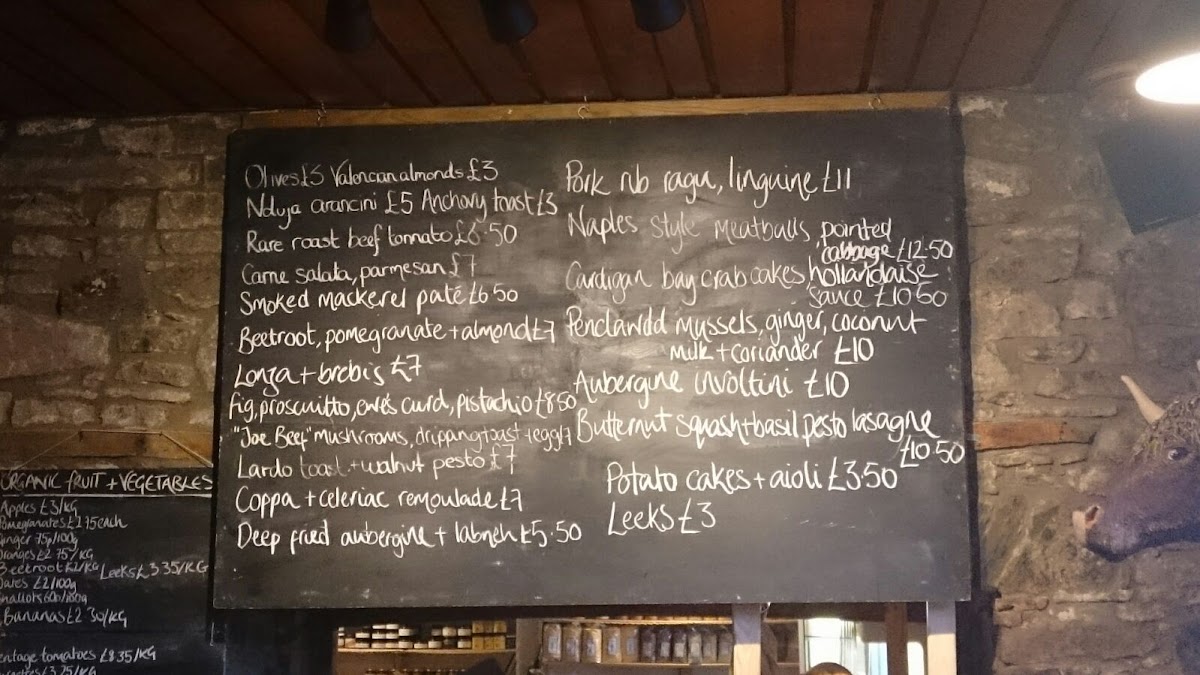 Olives £3 Valencian almonds £3
Nduja arancini £5 Anchovy toast £3
Rare roast beef tonnato £6.50
Carne salata, parmesan £7
Smoked mackerel paté £6 50
Beetroot, pomegranate + almond £7
Lonza + brebis £7
fig, proscuitto, ewes curd, pistachio £8 50
"Joe Beef" mushrooms, dripping toast + egg £7
Lardo toast + walnut pesto £7
Coppa + celeriac remoulade £7
Deep fried aubergine + labneh £5.50
Pork rib ragu, linguine £11
Naples style meatballs, pointed
cabbage £12.50
Cardigan bay crab cakes, hollandaise
sauce £10 50
Penclawdd mussels, ginger, coconut
milk + coriander £10
Aubergine involtini £10
Butternut squash + basil pesto lasagne
£10.50
Potato cakes + aioli £3.50
Leeks £3
ORGANIC FRUIT + VEGETABLES
Apples £3/KG
Pomegranates £1 75 each
Ginger 75p/100g
Oranges £2 75/KG
Beetroot £2/KG Leeks £3 35/KG
Dates £2/100g
Shallots 60p/100g
Bananas £2 30/KG
tomatoes £8.35/KG